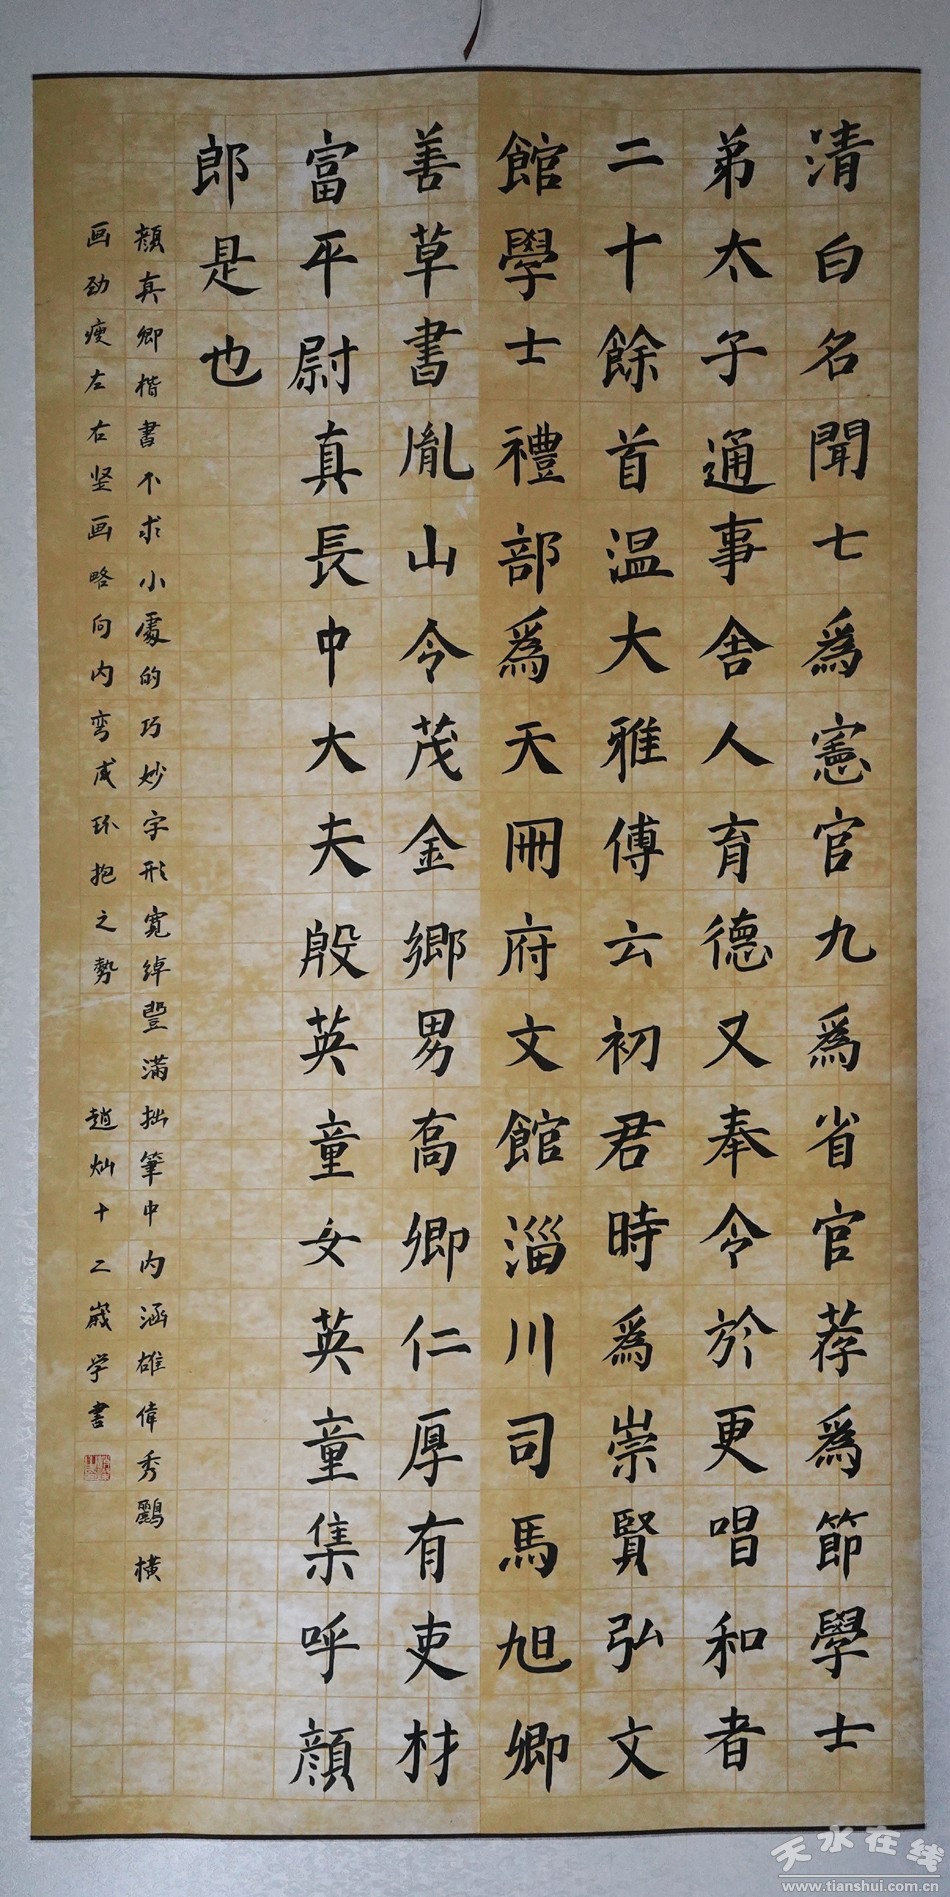 清白名聞七為憲官九為省官荐為節學士
弟太子通事舍人育德又奉令於更唱和者
二十餘首温大雅傅云初君時為崇賢弘文
館學士禮部為天冊府文館淄川司馬旭卿
善草書胤山令茂金鄉男喬卿仁厚有吏材
富平尉真長中大夫殷英童女英童集呼顔
郎是也
顏真卿楷書不求小處的巧妙字形寬绰豐满拙筆中内涵雄偉秀麗橫
画劲瘦左右竖画略向内弯成环抱之勢 趙灿十二歲学書
天水在线
www.tianshui.com.cn